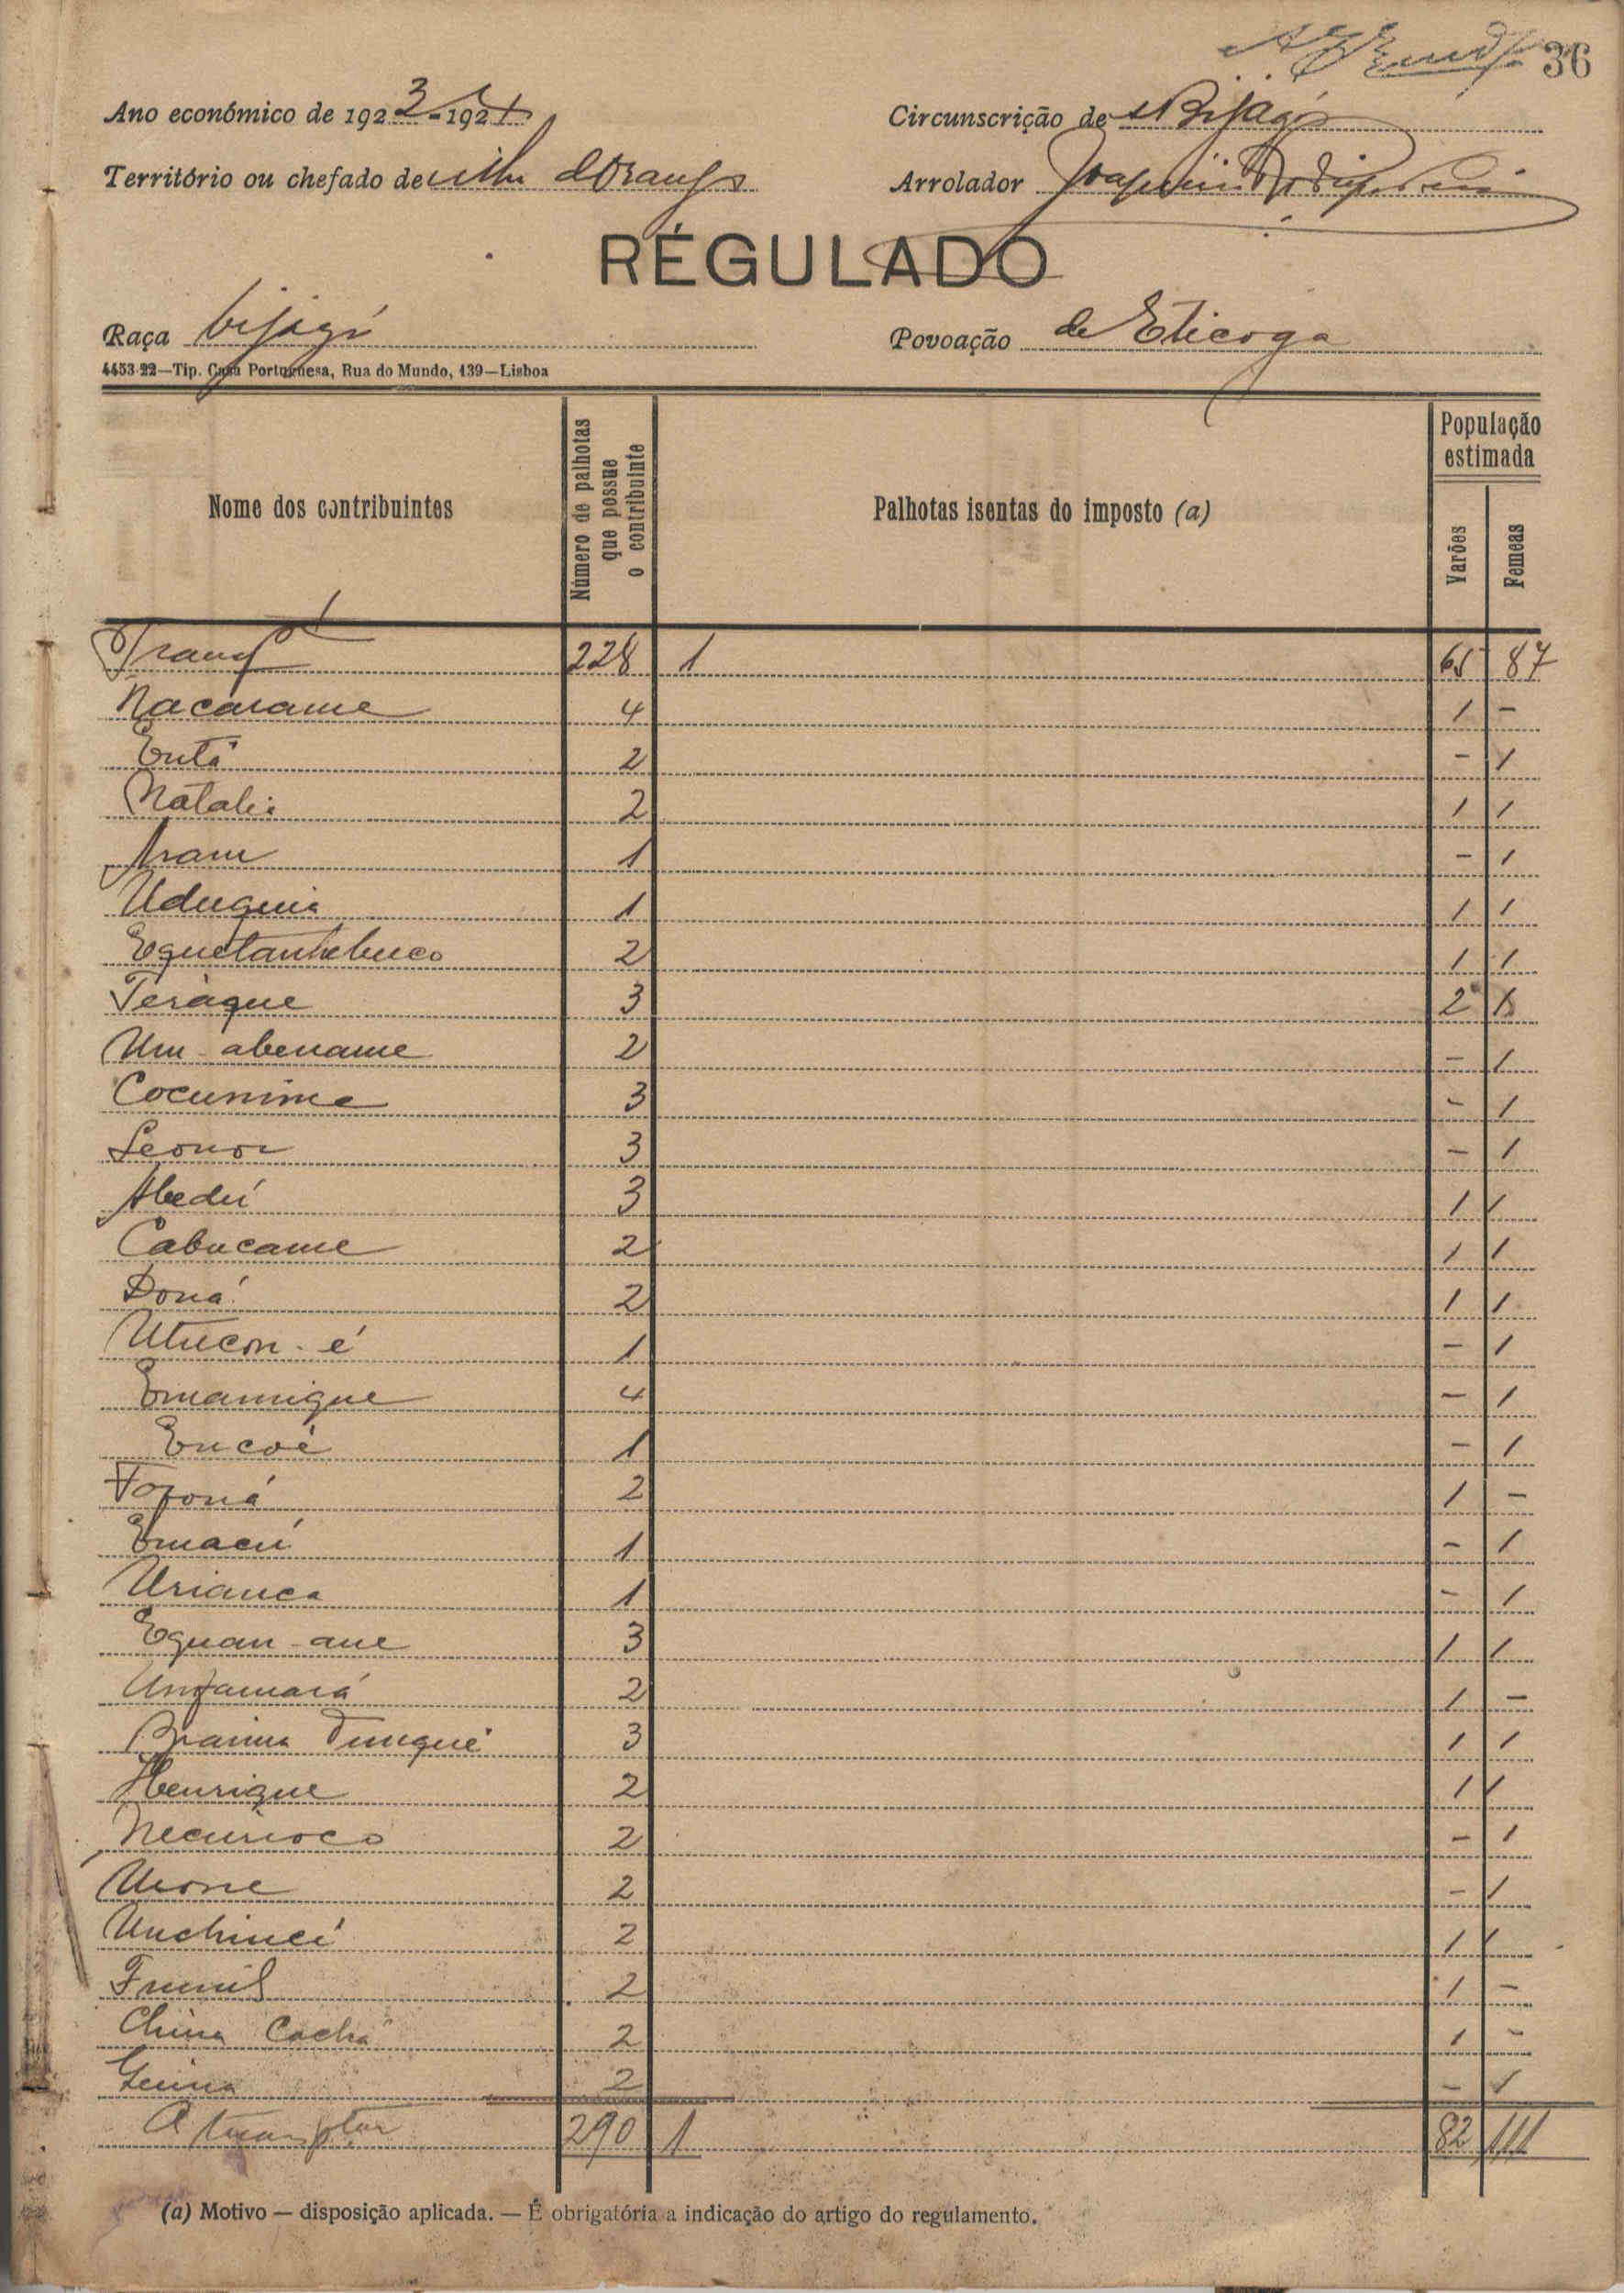 36
Ano económico de 1923-1924
Circunscrição de Bijagós
Território ou chefado de ilha d'Orango
Arrolador Joaquim
RÉGULADO
Raça bijagó
Povoação de Eticoga
4453-22—Tip. Casa Portuguesa, Rua do Mundo, 139—Lisboa
Nome dos contribuintes
Número de palhotas que possue o contribuinte
Palhotas isentas do imposto (a)
População estimada
Varões
Femeas
Transpe 228 1 65 87
Nacarame 4 1 -
Entá 2 - 1
Natalia 2 1 1
1 - 1
Uduguia 1 1 1
Eguetanhebuco 2 1 1
Teraque 3 2 1
Um-abename 2 - 1
Cocunime 3 - 1
Leonor 3 - 1
Abedú 3 1 1
Cabucame 2 1 1
Doná 2 1 1
Utucon-é 1 - 1
Emamigue 4 - 1
Encoé 1 - 1
Toroná 2 1 -
Emacú 1 - 1
Urianca 1 - 1
Eguan-ane 3 1 1
Unfamará 2 1 -
Braima Tungué 3 1 1
Henrique 2 1 1
Necurioco 2 - 1
Uone 2 - 1
Unchincé 2 1 1
Funil 2 1 -
China Cachá 2 1 -
2 - 1
A transptar 290 1 82 111
(a) Motivo — disposição aplicada. — É obrigatória a indicação do artigo do regulamento.